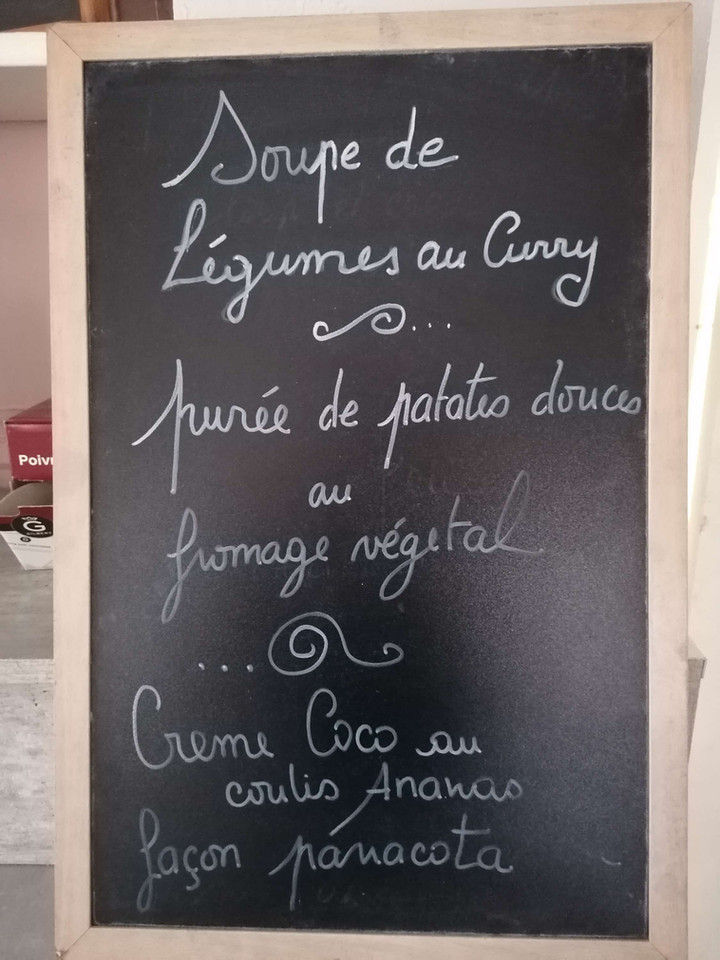 Soupe de
Légumes au Curry
...
purée de patates douces
au
fromage végétal
....
Creme Coco au
coulis Ananas
façon pánacota
Poiv
G